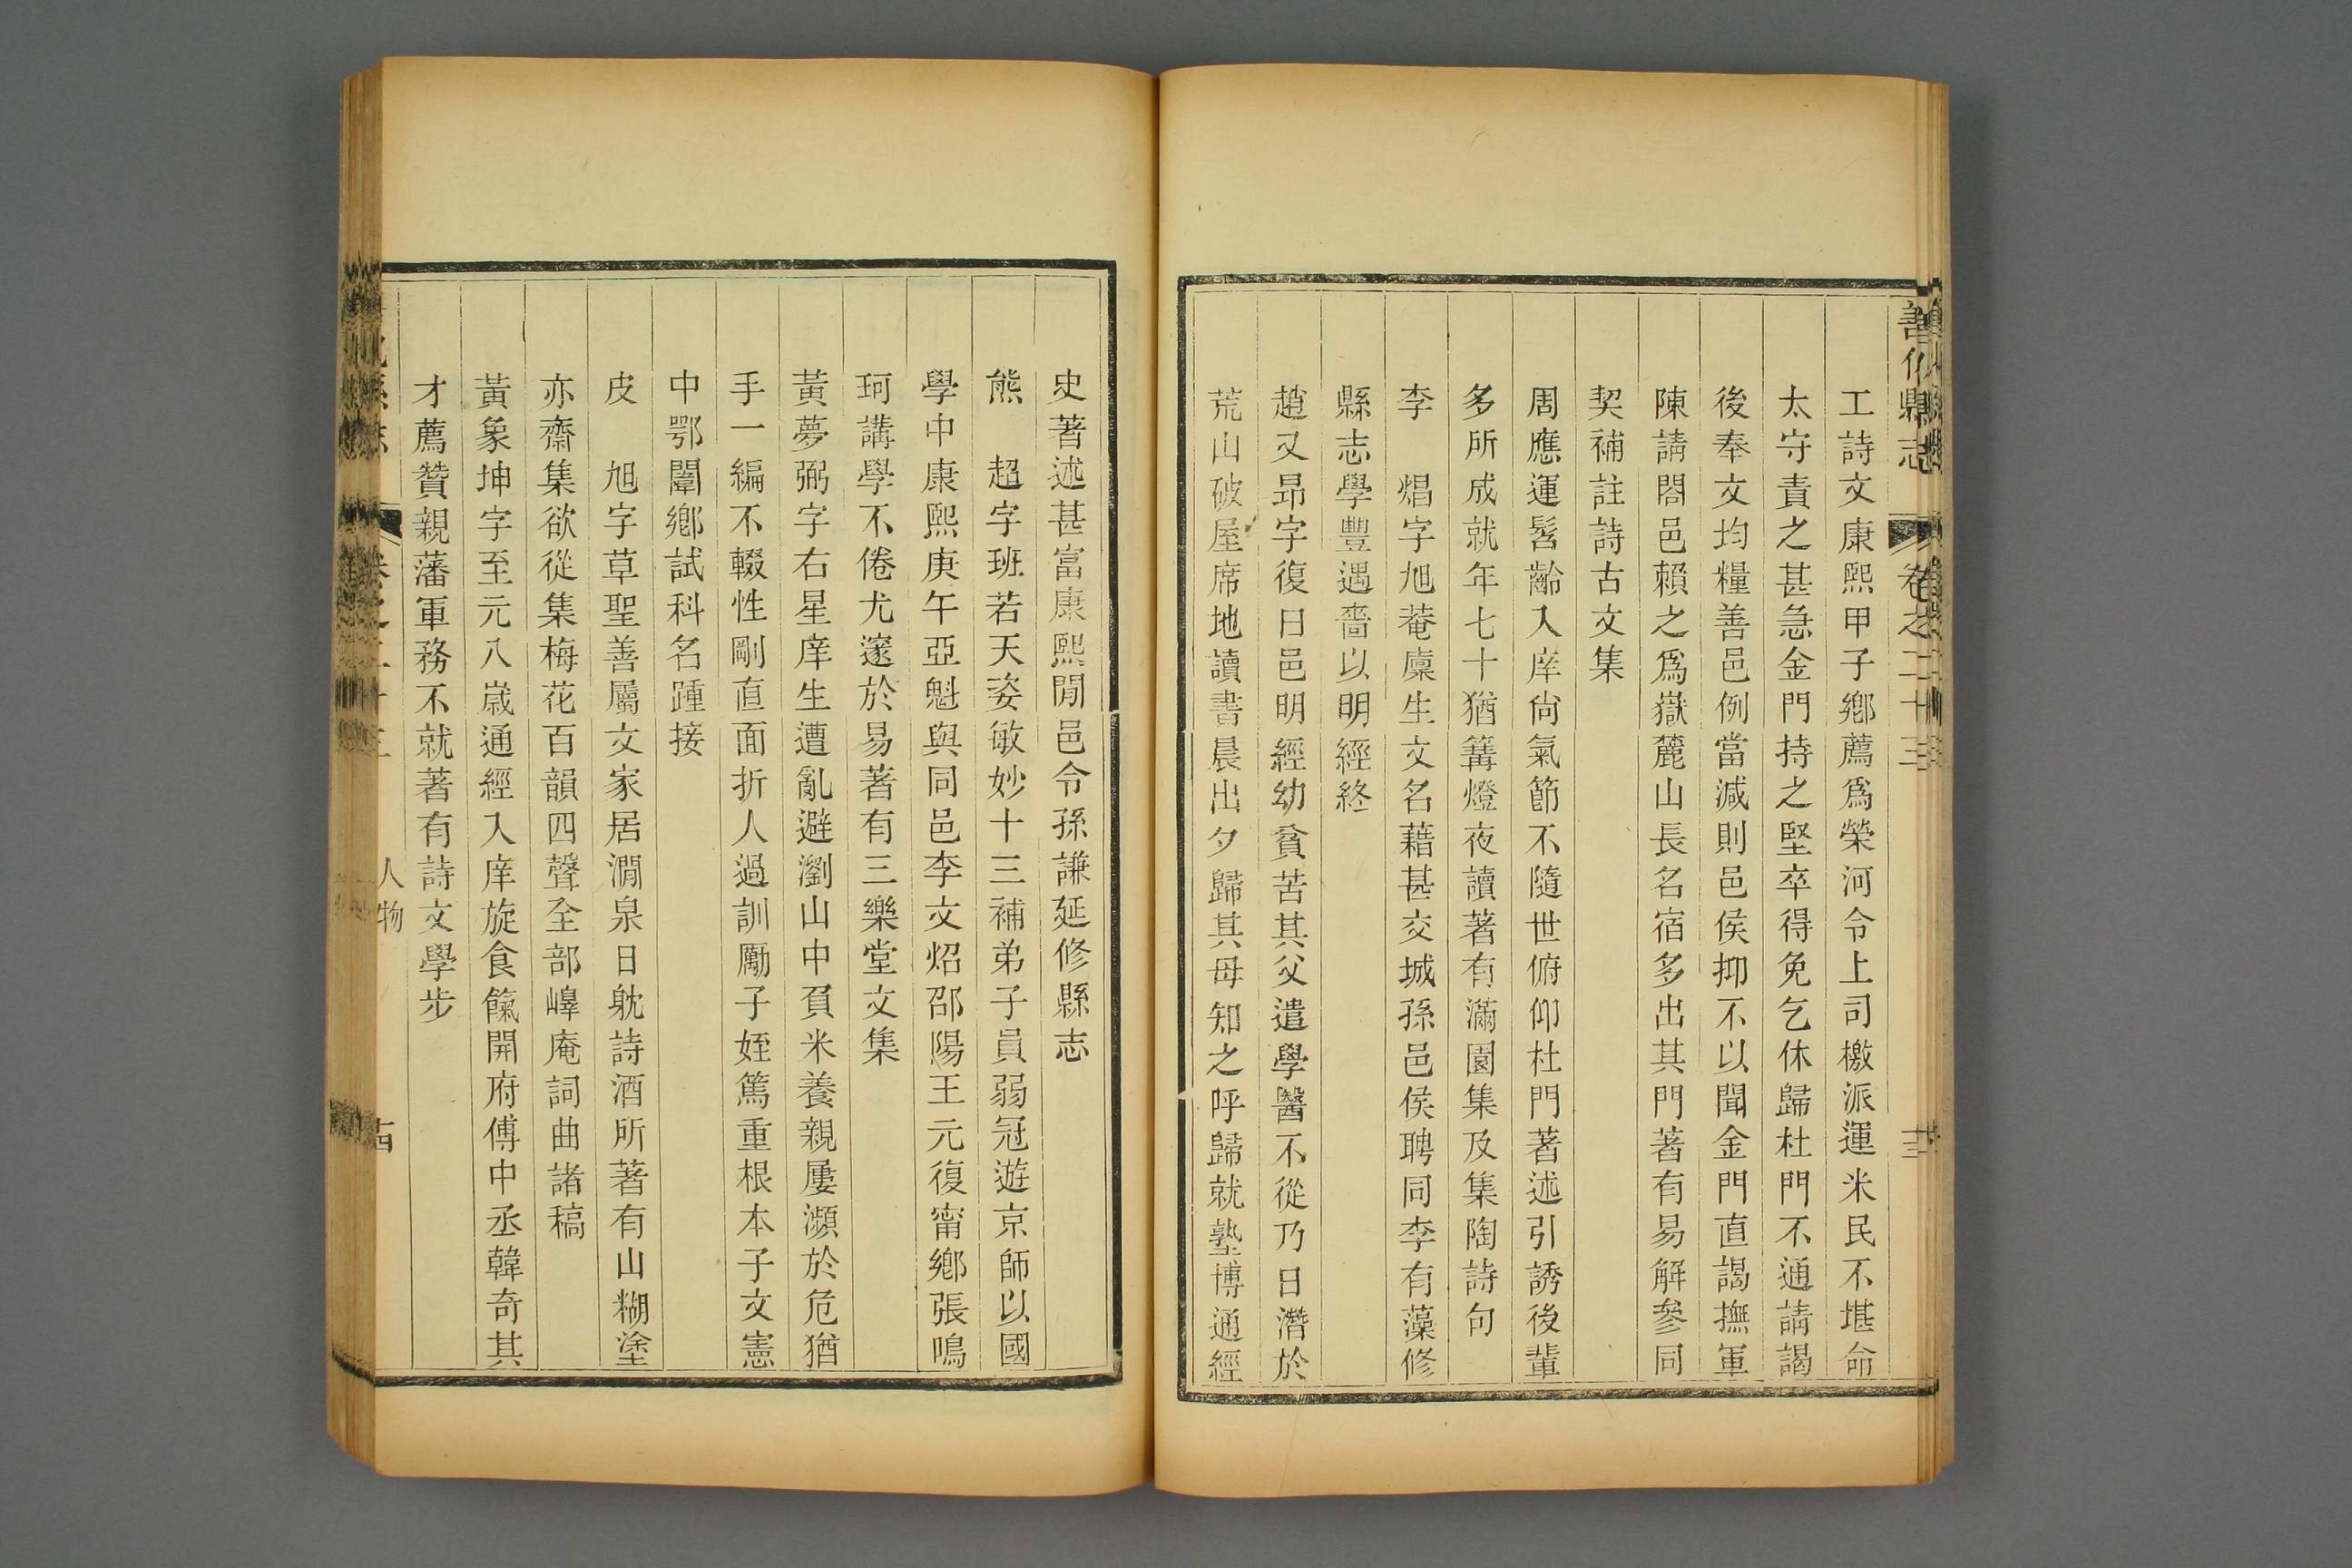 善化縣志 卷之二十三
工詩文康熙甲子鄉薦爲榮河令上司檄派運米民不堪命
太守責之甚急金門持之堅卒得免乞休歸杜門不通請謁
後奉文均糧善邑例當減則邑侯抑不以聞金門直謁撫軍
陳請閤邑賴之爲嶽麓山長名宿多出其門著有易解參同
契補註詩古文集
周應運髫齡入庠尙氣節不隨世俯仰杜門著述引誘後輩
多所成就年七十猶篝燈夜讀著有滿園集及集陶詩句
李　焻字旭菴廩生文名藉甚交城孫邑侯聘同李有藻修
縣志學豐遇嗇以明經終
趙又昂字復日邑明經幼貧苦其父遣學醫不從乃日潛於
荒山破屋席地讀書晨出夕歸其母知之呼歸就塾博通經
史著述甚富康熙閒邑令孫謙延修縣志
熊　超字班若天姿敏妙十三補弟子員弱冠遊京師以國
學中康熙庚午亞魁與同邑李文炤邵陽王元復甯鄉張鳴
珂講學不倦尤邃於易著有三樂堂文集
黃夢弼字右星庠生遭亂避瀏山中負米養親屢瀕於危猶
手一編不輟性剛直面折人過訓勵子姪篤重根本子文憲
中鄂闈鄉試科名踵接
皮　旭字草聖善屬文家居澗泉日躭詩酒所著有山糊塗
亦齋集欲從集梅花百韻四聲全部嶧庵詞曲諸稿
黃象坤字至元八歲通經入庠旋食餼開府傅中丞韓奇其
才薦贊親藩軍務不就著有詩文學步
人物